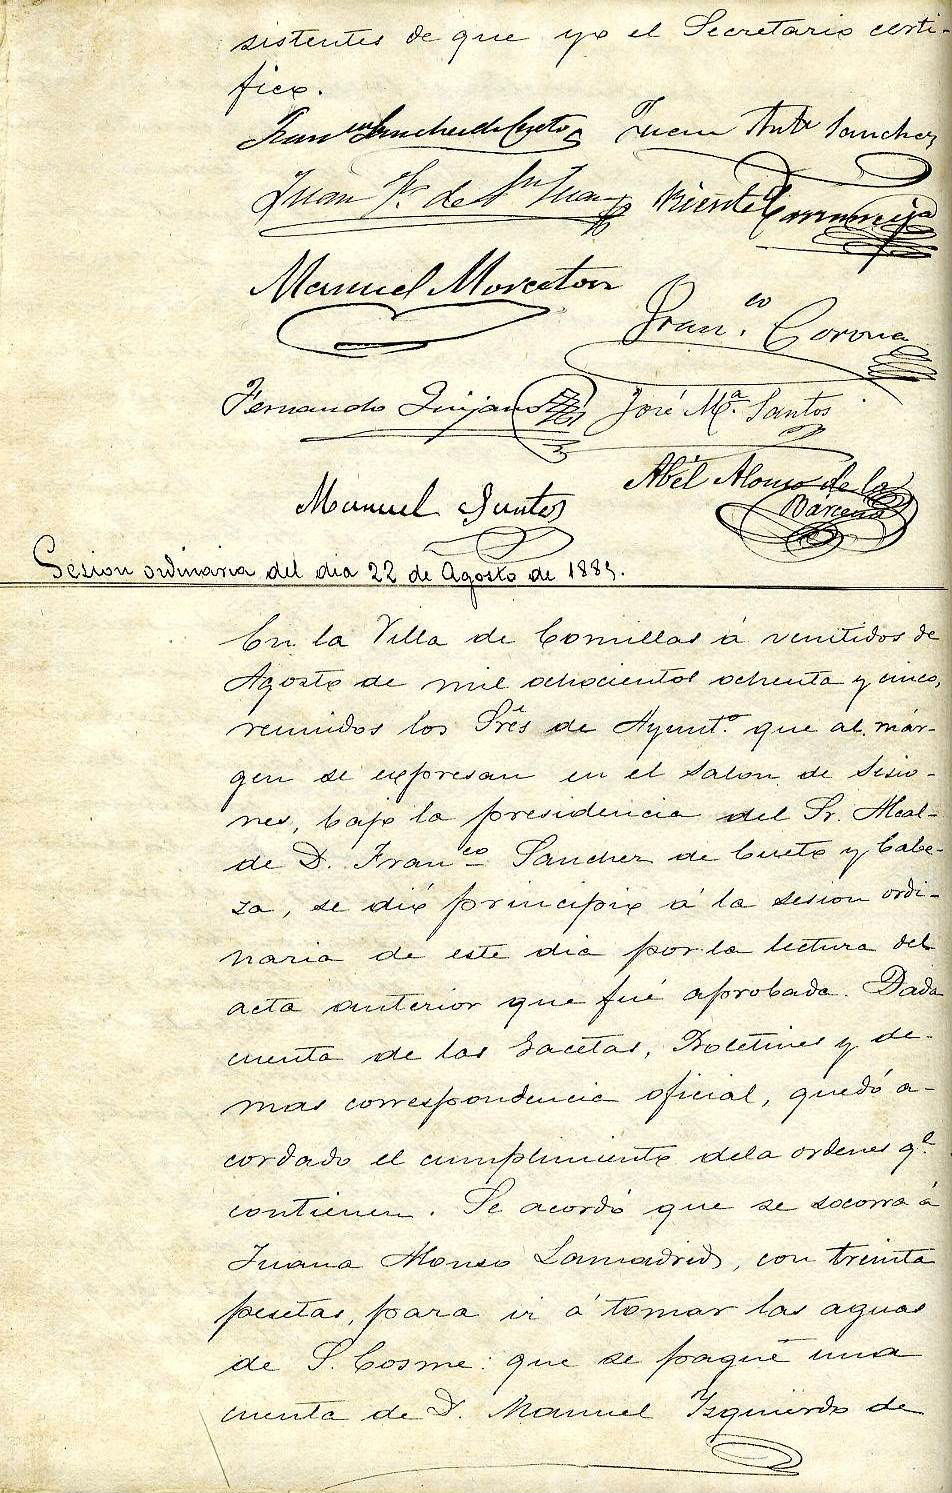 sistentes de que yo el Secretario certi-
fico.
Fran.co Sanchez de Cueto Juan Ant.o Sanchez
Juan F. de Sn Juan Vicente
Manuel
Fran.co Corona
Fernando Quijano José M.a Santos
Abél Alonso de la
Manuel Santos Bárcena
Sesion ordinaria del dia 22 de Agosto de 1885.
En la Villa de Comillas á ventidos de
Agosto de mil ochocientos ochenta y cinco,
reunidos los Srēs de Ayunt.o que al már-
gen se expresan en el salon de sisio-
nes, bajo la presidencia del Sr. Alcal-
de D. Fran.co Sanchez de Cueto y Cabe-
za, se dió principio á la sesion ordi-
naria de este dia por la lectura del
acta anterior que fué aprobada. Dada
cuenta de las Gacetas, Boletines y de-
mas correspondencia oficial, quedó a-
cordado el cumplimiento dela ordenes q.e
contienen. Se acordó que se socorra á
Juana Alonso Lamadrid, con treinta
pesetas, para ir á tomar las aguas
de S. Cosme: que se pague una
cuenta de D. Manuel Izquierdo de